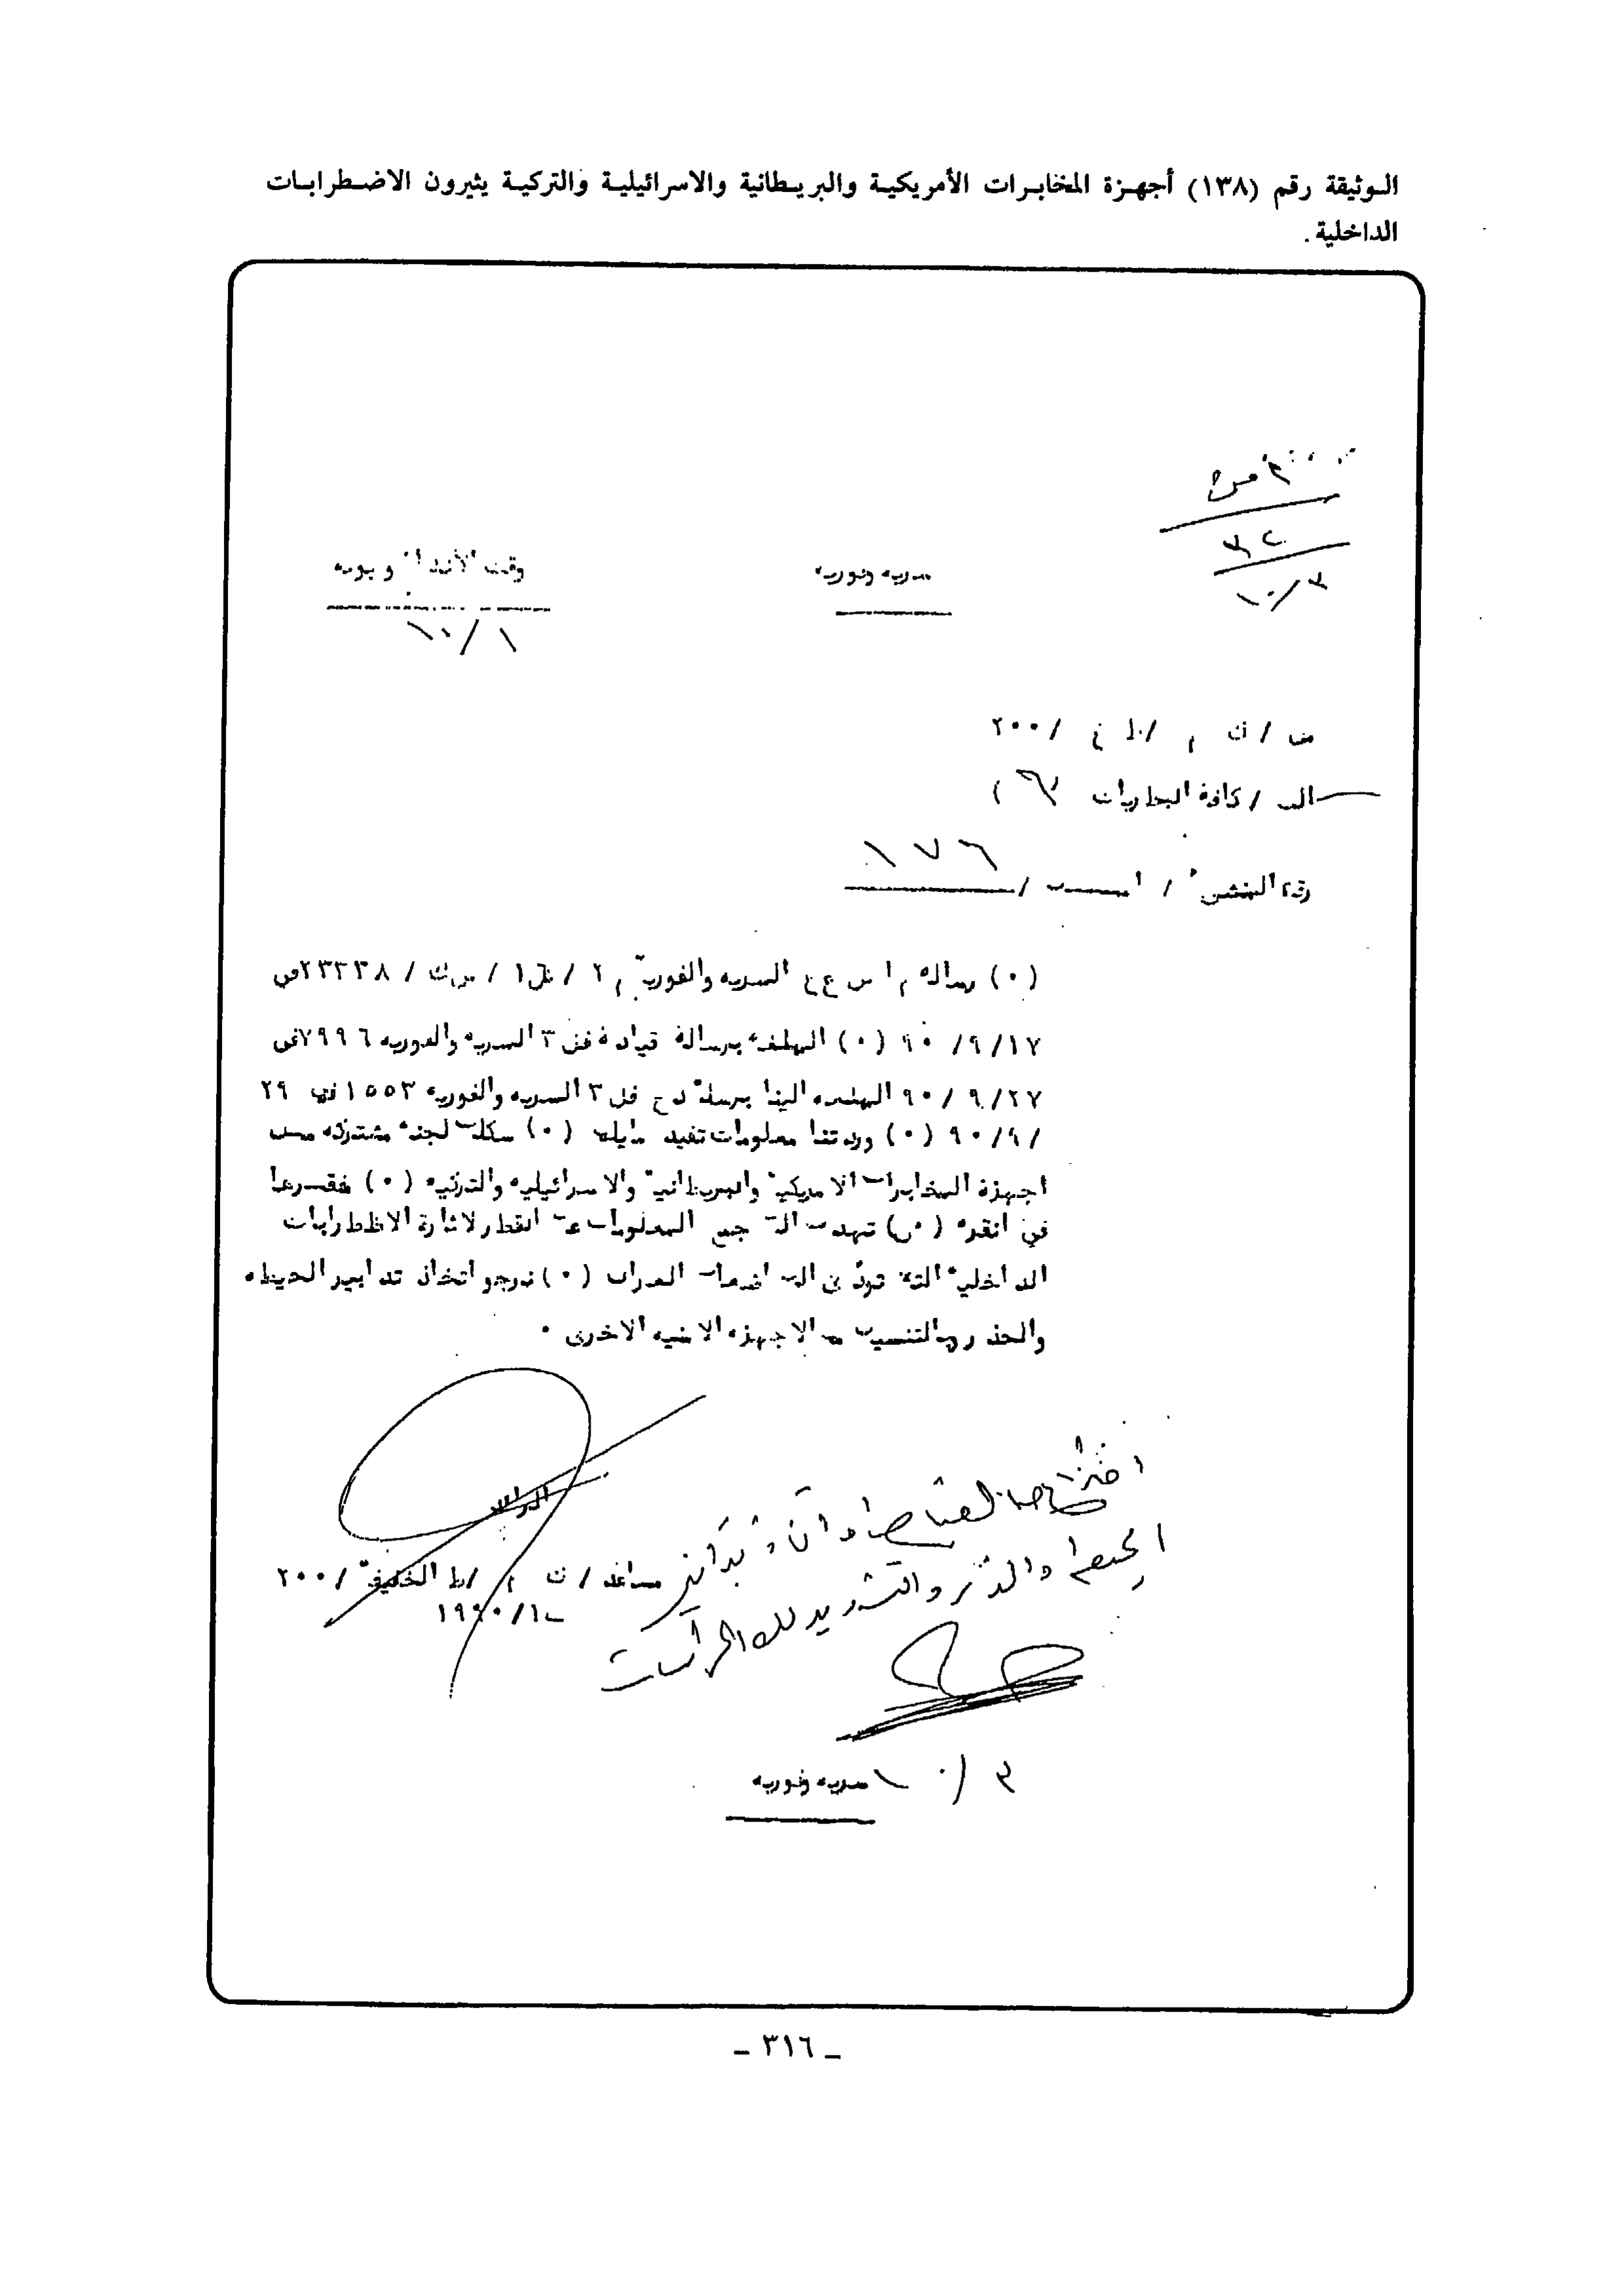 الوثيقة رقم (١٣٨) أجهزة المخابرات الأمريكية والبريطانية والاسرائيلية والتركية يثيرون الاضطرابات
الداخلية .
٣٢
١٠/٣
سريه وفوريه
وقت الأنشاء ويومه
١٠/١
من / ك م /ط خ /٢٠٠
الى / كافة البطريات ٦٣ )
رقم المنشئ / أمن / ١٧٦
(٠) رساله م ا س ع خ السريه والفورية م ٢ / ش١ / س ك / ٢٣٣٣٨ في
٩٠/٩/١٧ (٠) المبلغه برسالة قيادة فق ٣ السريه والفوريه ٧٩٩٦ في
٩٠/٩/٢٧ المبلغه الينا برسالة دج فل ٣ السريه والفوريه ١٥٥٣ في ٢٩
٩٠/٩/ (٠) وردتنا معلومات تفيد مايلي (٠) شكلت لجنة مشتركه من
اجهزة المخابرات الامريكية والبريطانية والاسرائيليه والتركيه (٠) مقرها
في أنقره (٠) تهدف الى جمع المعلومات عن القطر لاثارة الاظطرابات
الداخلية التي تؤدي الى اضعاف العراق (٠) نرجو اتخاذ تدابير الحيطه
والحذر والتنسيق مع الاجهزه الامنيه الاخرى ٠
الرائد
مساعد / ك م /ط الخفيفة /٢٠٠
١٩٩٠/١٠
الحيطه والحذر والتشديد على الحراسات
١٠/٣
سريه وفوريه
ـ ٣١٦ ـ